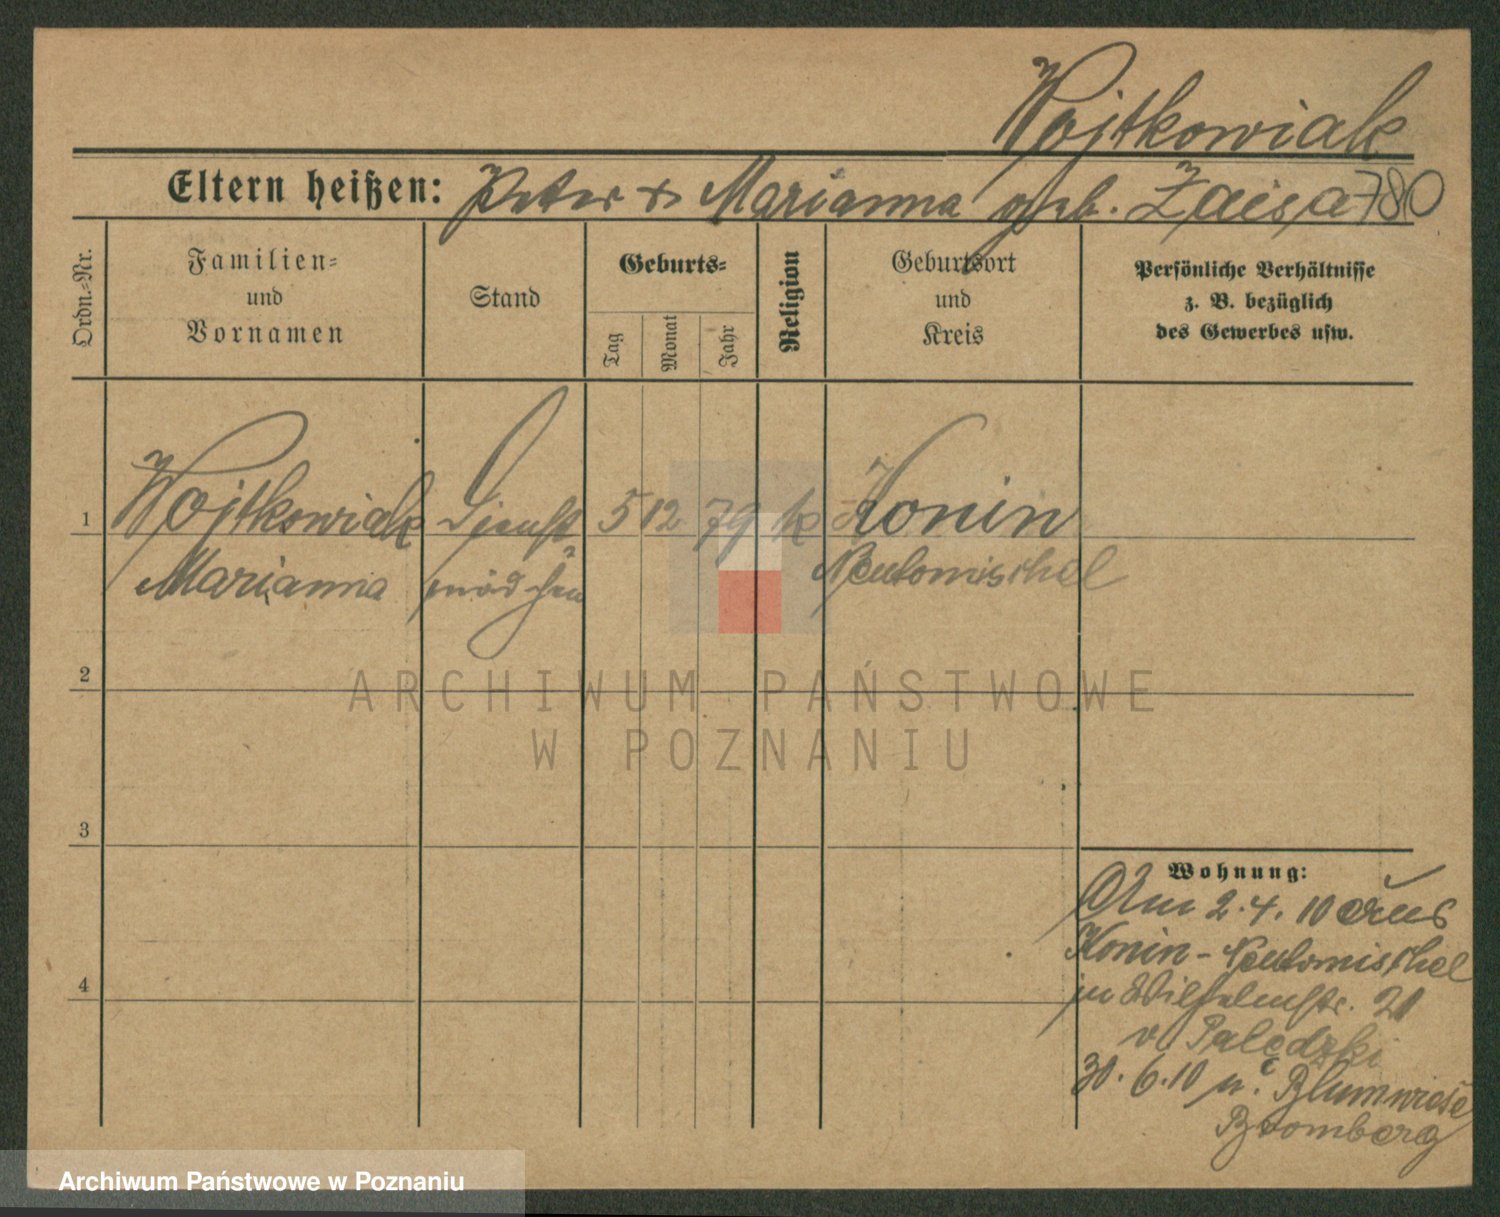 Wojtkowiak
Eltern heißen: Peter & Marianna geb. Zaisa 780
Ordn.-Nr.
Familien-
und
Vornamen
Stand
Geburts-
Tag
Monat
Jahr
Religion
Geburtsort
und
Kreis
Persönliche Verhältnisse
z. B. bezüglich
des Gewerbes usw.
1 Wojtkowiak Dienst 5 12 79 k Konin
Marianna mädchen Neutomischel
2
ARCHIWUM PAŃSTWOWE
W POZNANIU
3
Wohnung:
Am 2.4.10 aus
Konin - Neutomischel
in Wilhelmstr. 21
v. Palędzki
30.6.10 n. Blumwiese
4
Bromberg
Archiwum Państwowe w Poznaniu